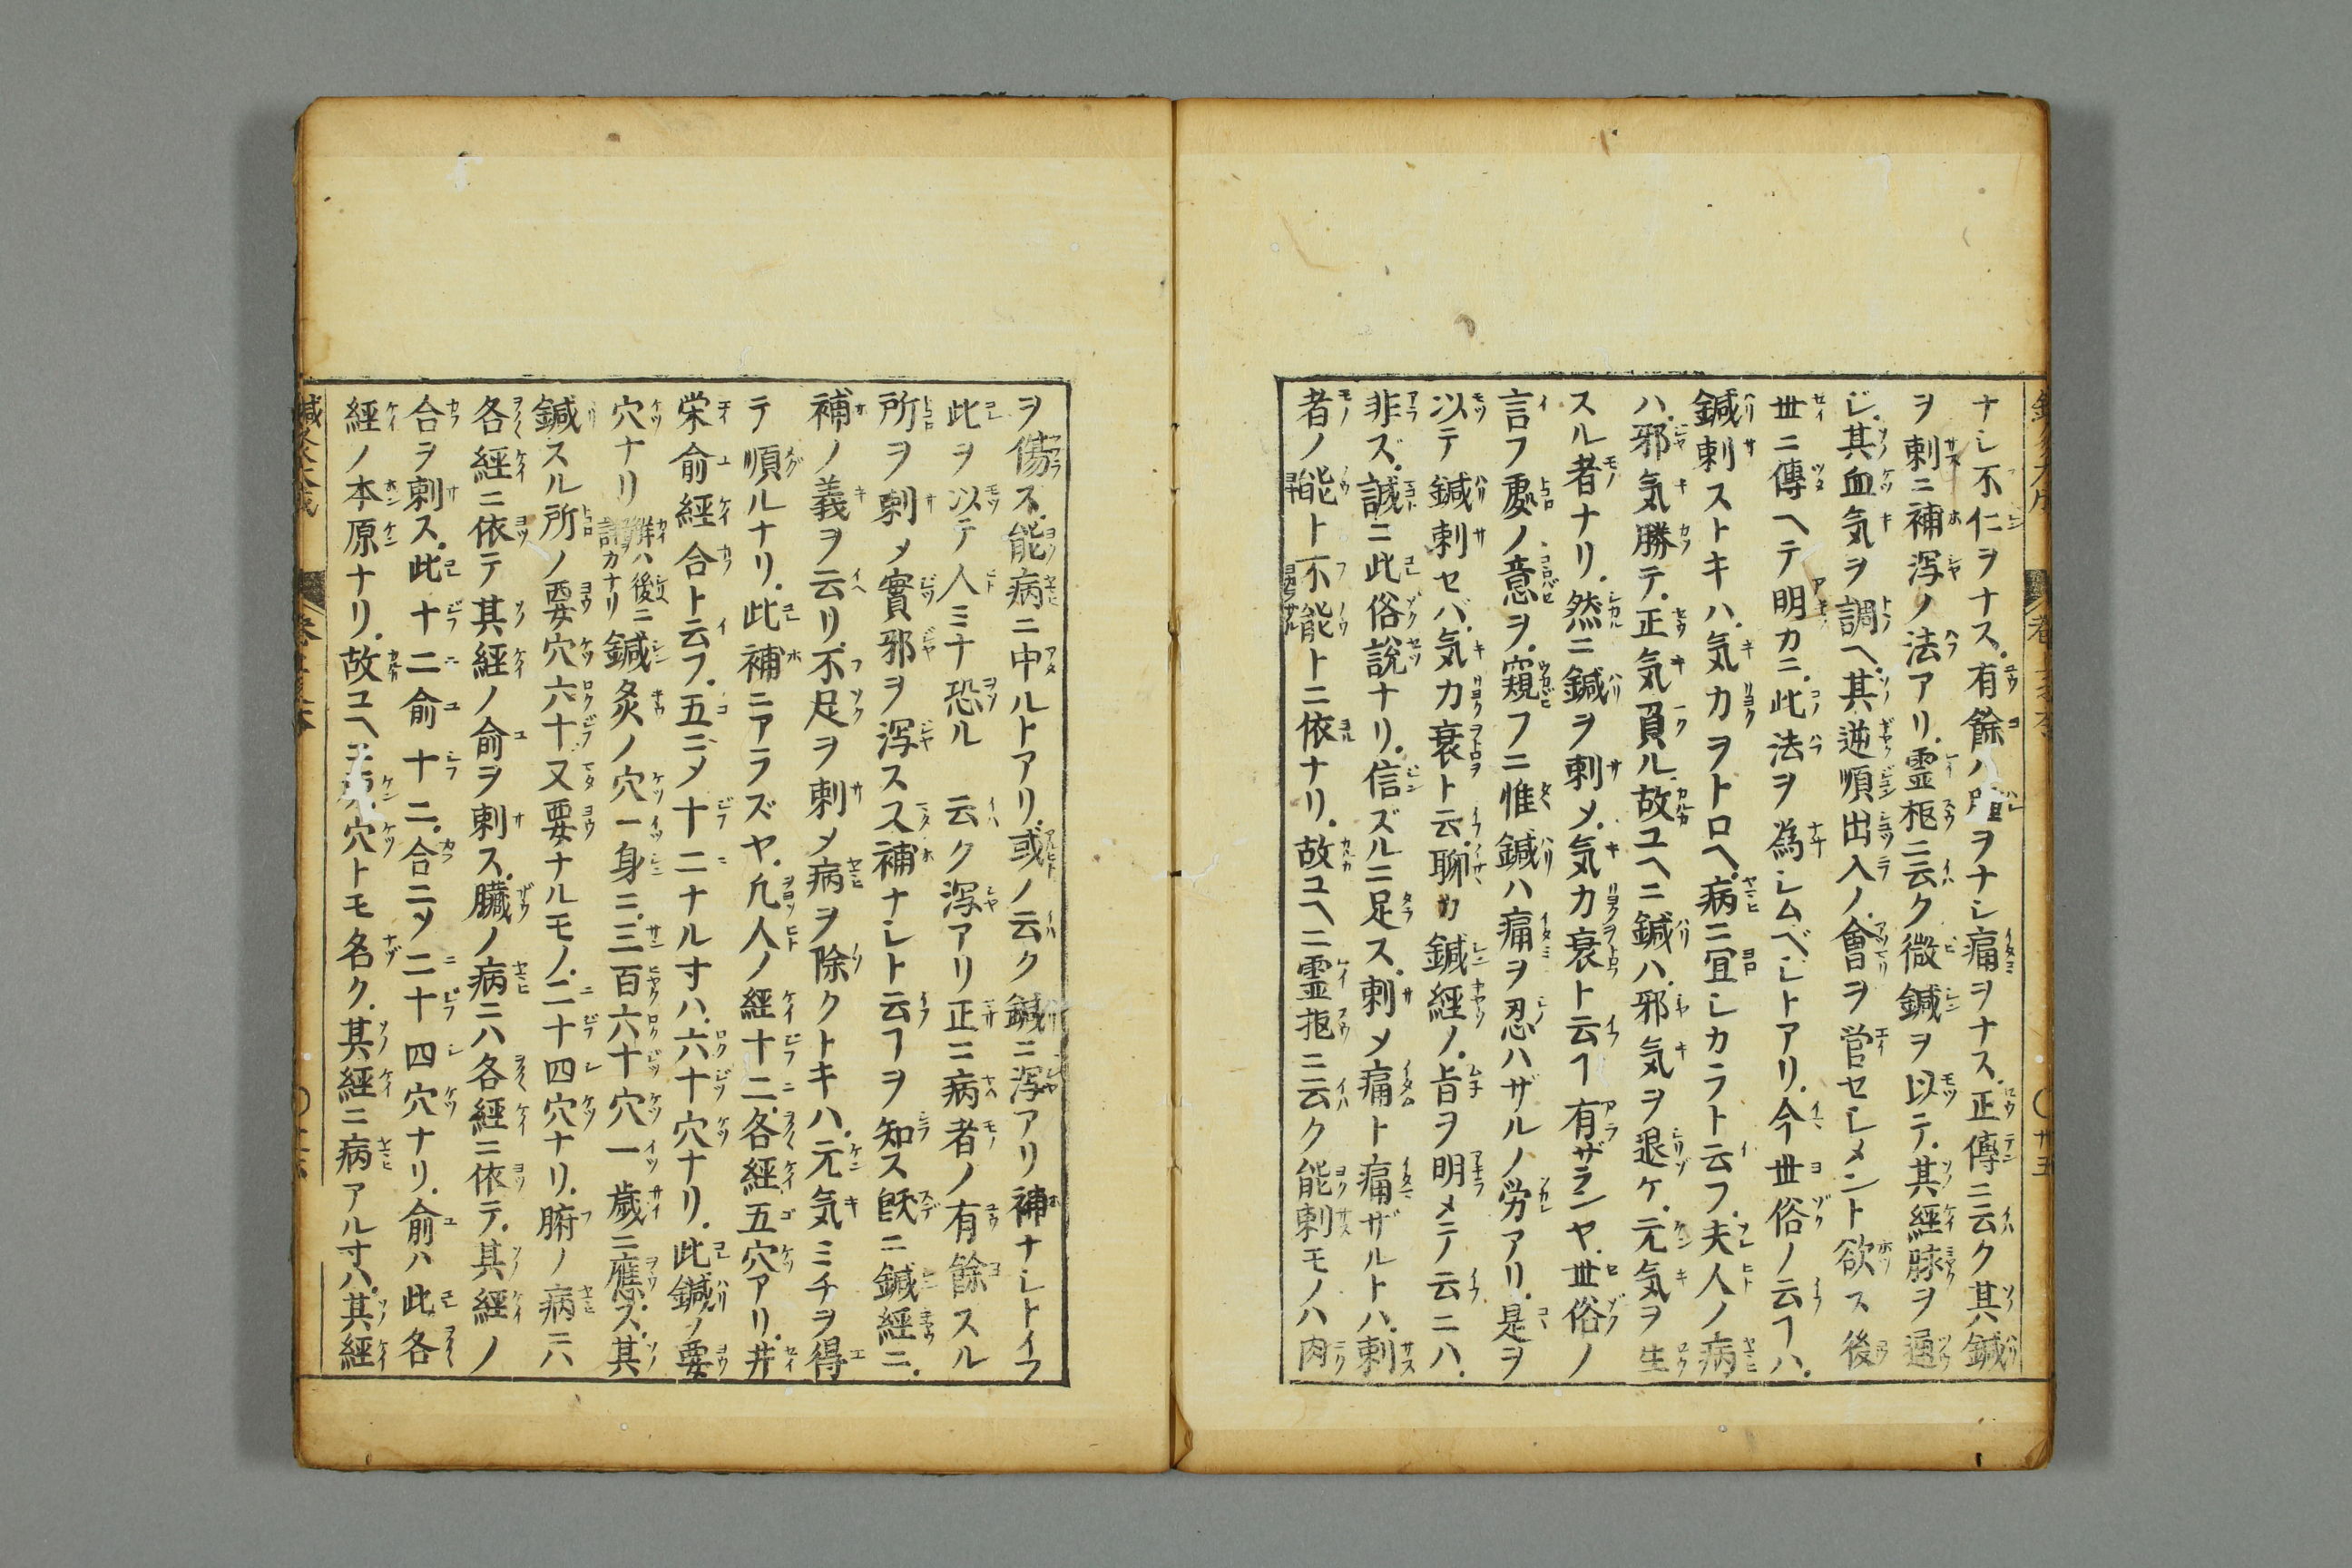 ナシ不仁ヲナス有餘ハ壇ヲナシ痛ヲナス正傳ニ云ク其鍼
ヲ刺ニ補瀉ノ法アリ霊枢ニ云ク微鍼ヲ以テ其經脉ヲ通
ジ其血気ヲ調ヘ其逆順出入ノ會ヲ営セシメント欲ス後
丗ニ傳ヘテ明カニ此法ヲ為シムベシトアリ今丗俗ノ云ヿハ
鍼刺ストキハ気力ヲトロヘ病ニ宜シカラト云フ夫人ノ病
ハ邪気勝テ正気負ル故ユヘニ鍼ハ邪気ヲ退ケ元気ヲ生
スル者ナリ然ニ鍼ヲ刺メ気力衰ト云ヿ有ザランヤ丗俗ノ
言フ處ノ意ヲ窺フニ惟鍼ハ痛ヲ忍ハザルノ労アリ是ヲ
以テ鍼刺セバ気力衰ト云聊カ鍼經ノ旨ヲ明メテノ云ニハ
非ズ誠ニ此俗說ナリ信ズルニ足ス刺メ痛ト痛ザルトハ刺
者ノ能ト不能トニ依ナリ故ユヘニ霊枢ニ云ク能刺モノハ肉
ヲ傷ス能病ニ中ルトアリ或ノ云ク鍼ニ瀉アリ補ナシトイフ
此ヲ以テ人ミナ恐ル 云ク瀉アリ正ニ病者ノ有餘スル
所ヲ刺メ實邪ヲ瀉ス又補ナシト云ヿヲ知ス既ニ鍼經ニ
補ノ義ヲ云リ不足ヲ刺メ病ヲ除クトキハ元気ミチヲ得
テ順ルナリ此補ニアラズヤ凡人ノ經十二各經五穴アリ井
栄俞經合ト云フ五ニメ十二ナル寸ハ六十穴ナリ此鍼ノ要
穴ナリ觧ハ後ニ詳カナリ鍼灸ノ穴一身ニ三百六十穴一歳ニ應ス其
鍼スル所ノ要穴六十又要ナルモノ二十四穴ナリ腑ノ病ニハ
各經ニ依テ其經ノ俞ヲ刺ス臓ノ病ニハ各經ニ依テ其經ノ
合ヲ刺ス此十二俞十二合ニメ二十四穴ナリ俞ハ此各
經ノ本原ナリ故ユヘニ穴トモ名ク其經ニ病アル寸ハ其經